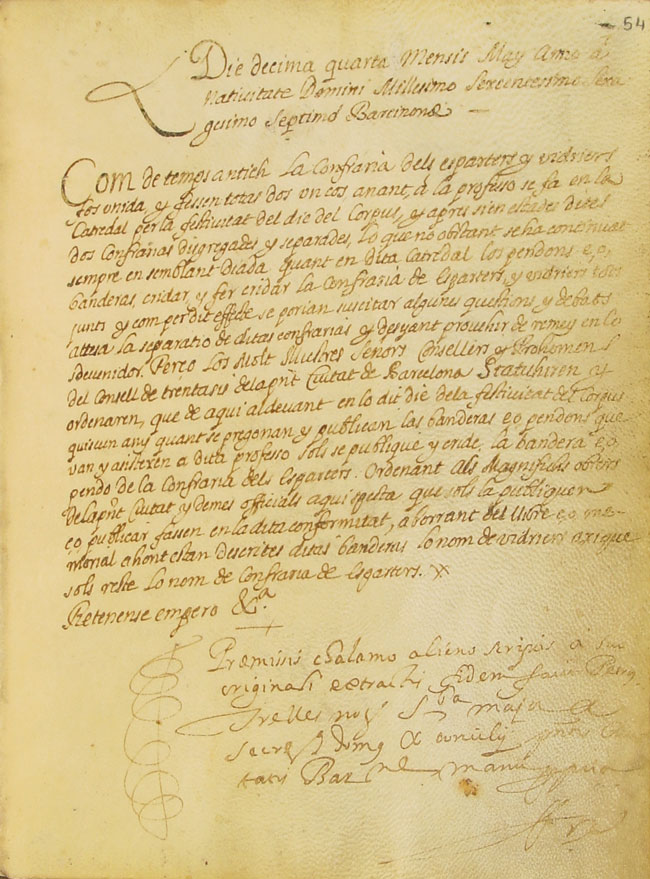 54
Die decima quarta Mensis Maÿ Anno a
Nativitate Domini Millesimo Sexcentesimo Sexa
gesimo Septimo Barcinonæ
Com de temps antich la Confraria dels esparters y vidriers
fos unida y fessen totas dos un cos anant, a la professo se fa en la
Catedral per la festivitat del die del Corpus, y apres sien estades dites
dos Confrarias disgregades y separades, lo que no obstant se ha continuat
sempre en semblant diada quant en dita Catedral los pendons e,o,
banderas, cridar, y fer cridar la Confraria de Esparters, y vidriers tots
junts y com per dit effecte se porian suscitar algunes questions y debats
attesa la separatio de ditas confrarias y desijant provehir de remey en lo
sdevenidor. Perco los Molt Illustres Senors Consellers y Prohomens
del Consell de trentasis de la pnt Ciutat de Barcelona Statuhiren y
ordenaren, que de aqui al devant en lo dit die de la festivitat del Corpus
quiscun any quant se pregonan y publican las banderas e,o pendons que
van y asisteren a dita professo sols se publique y cride, la bandera e,o,
pendo de la Confraria dels Esparters. Ordenant als Magnifichs obrers
de la pnt Ciutat y demes officials a qui spesta que sols la publiquen
e,o publicar fassen en la dita conformitat, aborrant del llibre e,o me-
morial ahont estan descrites ditas banderas lo nom de vidriers a fi que
sols reste lo nom de Confraria de Esparters.
Retenense empero &.ª
Præmissis chalamo alieno scriptis a suo
originali extractis fidem facio Petrus
Trelles noty
secret domus & consilij
tatis Bar ne manu propria